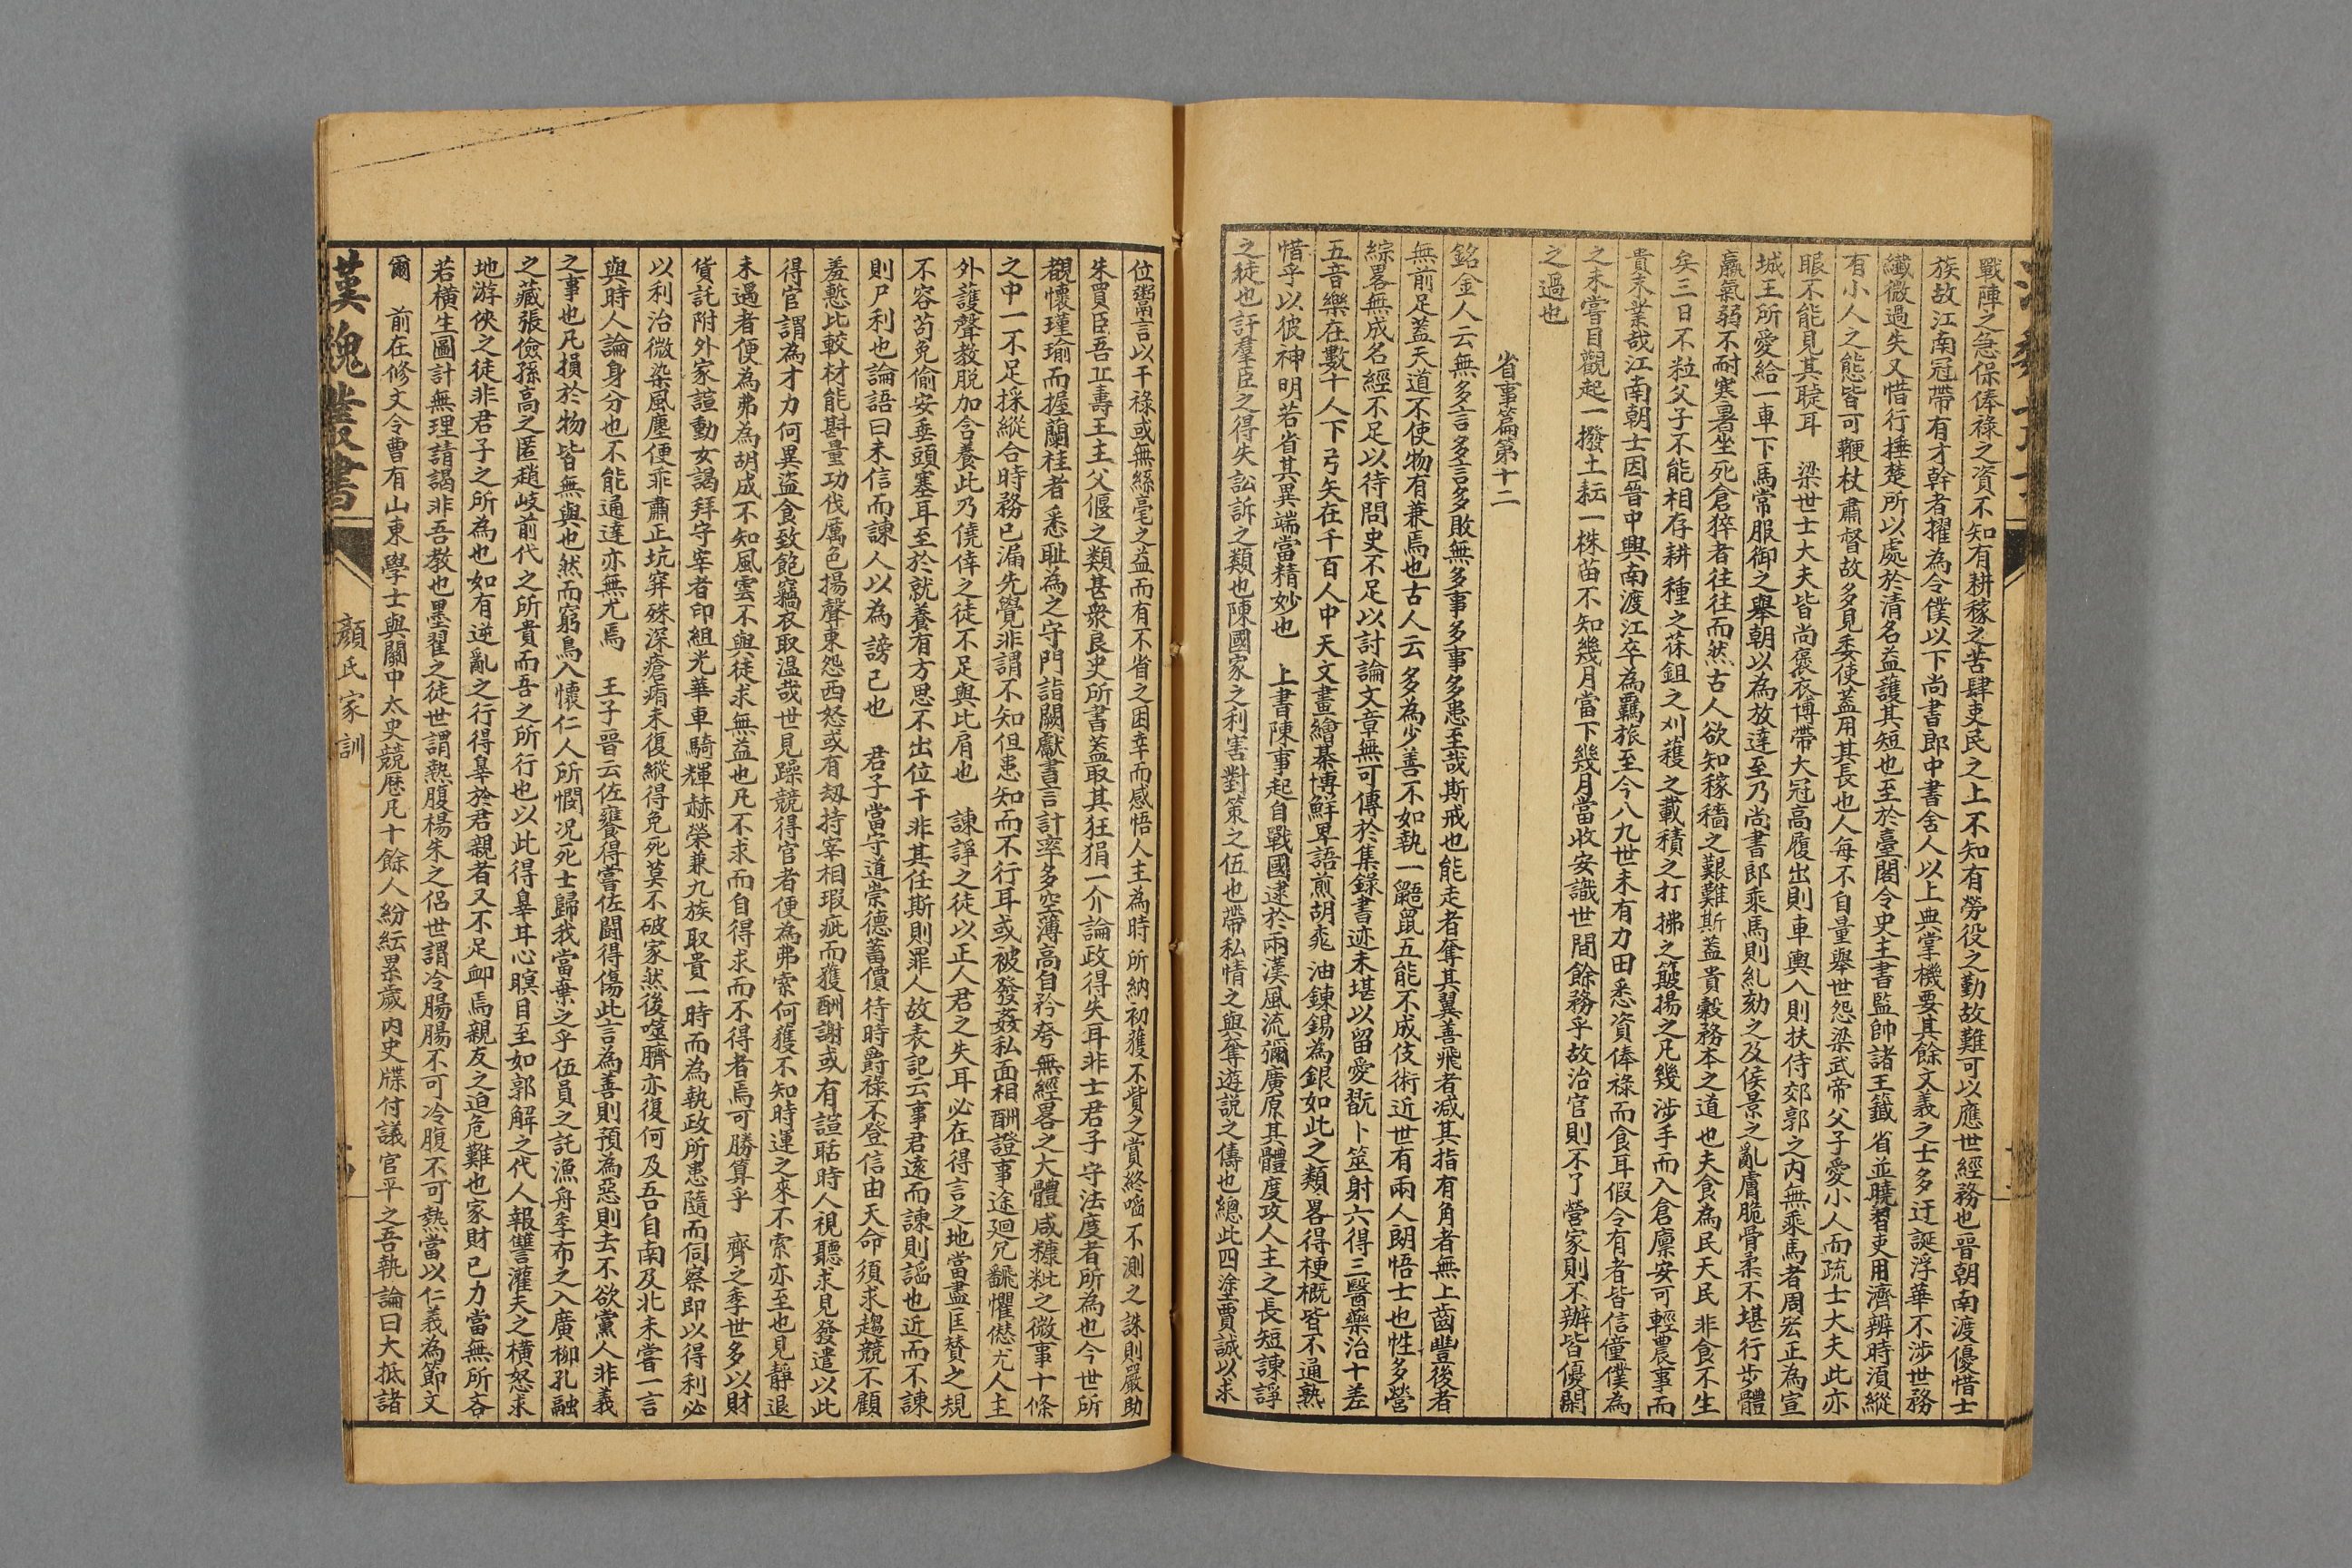 戰陣之急保俸祿之資不知有耕稼之苦肆吏民之上不知有勞役之勤故難可以應世經務也晉朝南渡優惜士
族故江南冠帶有才幹者擢為令僕以下尚書郎中書舍人以上典掌機要其餘文義之士多迂誕浮華不涉世務
纖微過失又惜行捶楚所以處於清名益護其短也至於臺閣令史主書監帥諸王籤省並曉習吏用濟辨時須縱
有小人之態皆可鞭杖肅督故多見委使蓋用其長也人每不自量舉世怨梁武帝父子愛小人而疏士大夫此亦
眼不能見其睫耳　梁世士大夫皆尚褒衣博帶大冠高履出則車輿入則扶侍郊郭之內無乘馬者周宏正為宣
城王所愛給一車下馬常服御之舉朝以為放達至乃尚書郎乘馬則糺劾之及侯景之亂膚脆骨柔不堪行步體
羸氣弱不耐寒暑坐死倉猝者往往而然古人欲知稼穡之艱難斯蓋貴穀務本之道也夫食為民天民非食不生
矣三日不粒父子不能相存耕種之茠鉏之刈穫之載積之打拂之簸揚之凡幾涉手而入倉廪安可輕農事而
貴末業哉江南朝士因晉中興南渡江卒為羈旅至今八九世未有力田悉資俸祿而食耳假令有者皆信僮僕為
之未嘗目觀起一撥土耘一株苗不知幾月當下幾月當收安識世間餘務乎故治官則不了營家則不辦皆優閑
之過也
省事篇第十二
銘金人云無多言多言多敗無多事多事多患至哉斯戒也能走者奪其翼善飛者减其指有角者無上齒豐後者
無前足蓋天道不使物有兼焉也古人云多為少善不如執一鼫鼠五能不成伎術近世有兩人朗悟士也性多營
綜畧無成名經不足以待問史不足以討論文章無可傳於集錄書迹未堪以留愛翫卜筮射六得三醫藥治十差
五音樂在數十人下弓矢在千百人中天文畫繪棊博鮮卑語煎胡桃油鍊錫為銀如此之類畧得梗概皆不通熟
惜乎以彼神明若省其異端當精妙也　上書陳事起自戰國逮於兩漢風流彌廣原其體度攻人主之長短諫諍
之徒也訐羣臣之得失訟訴之類也陳國家之利害對策之伍也帶私情之與奪遊説之儔也總此四塗賈誠以求
位鬻言以干祿或無絲毫之益而有不省之困幸而感悟人主為時所納初獲不貲之賞終啗不測之誅則嚴助
朱買臣吾丘壽王主父偃之類甚衆良史所書蓋取其狂狷一介論政得失耳非士君子守法度者所為也今世所
覩懷瑾瑜而握蘭桂者悉耻為之守門詣闕獻書言計率多空薄高自矜夸無經畧之大體咸糠粃之微事十條
之中一不足採縱合時務已漏先覺非謂不知但患知而不行耳或被發姦私面相酬證事途廻冗飜懼僽尤人主
外護聲教脱加含養此乃僥倖之徒不足與比肩也　諫諍之徒以正人君之失耳必在得言之地當盡匡賛之規
不容苟免偷安垂頭塞耳至於就養有方思不出位干非其任斯則罪人故表記云事君遠而諫則謟也近而不諫
則尸利也論語曰未信而諫人以為謗已也　君子當守道崇德蓄價待時爵祿不登信由天命須求趨競不顧
羞慙比較材能斟量功伐厲色揚聲東怨西怒或有刼持宰相瑕疵而獲酬謝或有諠聒時人視聽求見發遣以此
得官謂為才力何異盜食致飽竊衣取温哉世見躁競得官者便為弗索何獲不知時運之來不索亦至也見靜退
未遇者便為弗為胡成不知風雲不與徒求無益也凡不求而自得求而不得者焉可勝算乎　齊之季世多以財
貨託附外家諠動女謁拜守宰者印組光華車騎輝赫榮兼九族取貴一時而為執政所患隨而伺察即以得利必
以利治微染風塵便乖肅正坑穽殊深瘡痏未復縱得免死莫不破家然後噬臍亦復何及吾自南及北未嘗一言
與時人論身分也不能通達亦無尤焉　王子晉云佐饔得嘗佐鬪得傷此言為善則預為惡則去不欲黨人非義
之事也凡損於物皆無與也然而窮鳥入懷仁人所憫况死士歸我當棄之乎伍員之託漁舟季布之入廣柳孔融
之藏張儉孫嵩之匿趙岐前代之所貴而吾之所行也以此得辠甘心瞑目至如郭解之代人報讐灌夫之橫怒求
地游俠之徒非君子之所為也如有逆亂之行得辠於君親者又不足卹焉親友之迫危難也家財已力當無所吝
若橫生圖計無理請謁非吾教也墨翟之徒世謂熱腹楊朱之侶世謂冷腸腸不可冷腹不可熱當以仁義為節文
爾　前在修文令曹有山東學士與關中太史競歷凡十餘人紛紜累歲內史牒付議官平之吾執論曰大抵諸
漢魏叢書　顏氏家訓